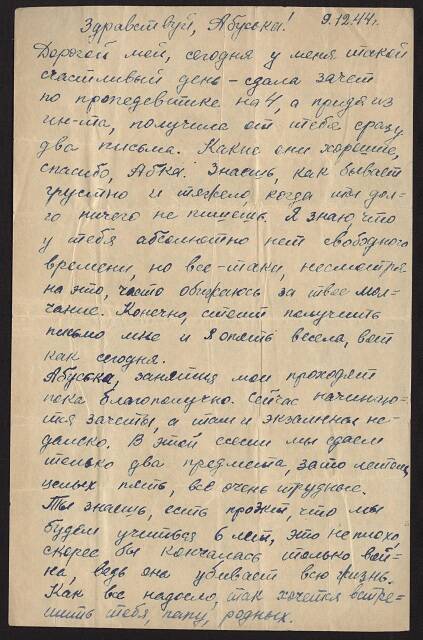 Здравствуй, Абуська! 9.12.44г.
Дорогой мой, сегодня у меня такой
счастливый день – сдала зачет
по пропедевтике на 4, а придя из
ин-та, получила от тебя сразу
два письма. Какие они хорошие,
спасибо, Абка. Знаешь, как бывает
грустно и тяжело, когда ты дол-
го ничего не пишешь. Я знаю что
у тебя абсолютно нет свободного
времени, но все-таки, несмотря
на это, часто обижаюсь за твое мол-
чание. Конечно, стоит получить
письмо мне и я опять весела, вот
как сегодня.
Абуська, занятия мои проходят
пока благополучно. Сейчас начинаю-
тся зачеты, а там и экзамены не-
далеко. В этой сессии мы сдаем
только два предмета, зато летом
целых пять, все очень трудные.
Ты знаешь, есть проэкт, что мы
будем учиться 6 лет, это не плохо,
скорее бы кончалась только вой-
на, ведь она убивает всю жизнь.
Как все надоело, так хочется встре-
тить тебя, папу, родных.